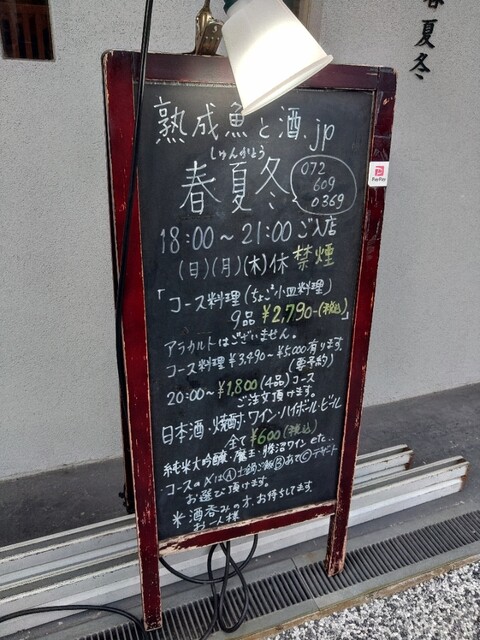 春夏冬
熟成魚と酒.jp
しゅんかとう
春夏冬
072
609
0369
PayPay
18:00～21:00ご入店
(日)(月)(木)休 禁煙
「コース料理(ちょこっと小皿料理)
9品 ¥2,790-(税込)」
アラカルトはございません。
コース料理¥3,490～¥5,000有ります。
(要予約)
20:00～¥1,800(4品)コース
ご注文頂けます。
日本酒・焼酎・ワイン・ハイボール・ビール
全て¥600(税込)
純米大吟醸・魔王・勝沼ワイン etc...
コースの〆はⒶ土鍋ご飯Ⓑあてⓒデザート
お選び頂けます。
米 酒呑みの方、お待ちしてます。
お一人様